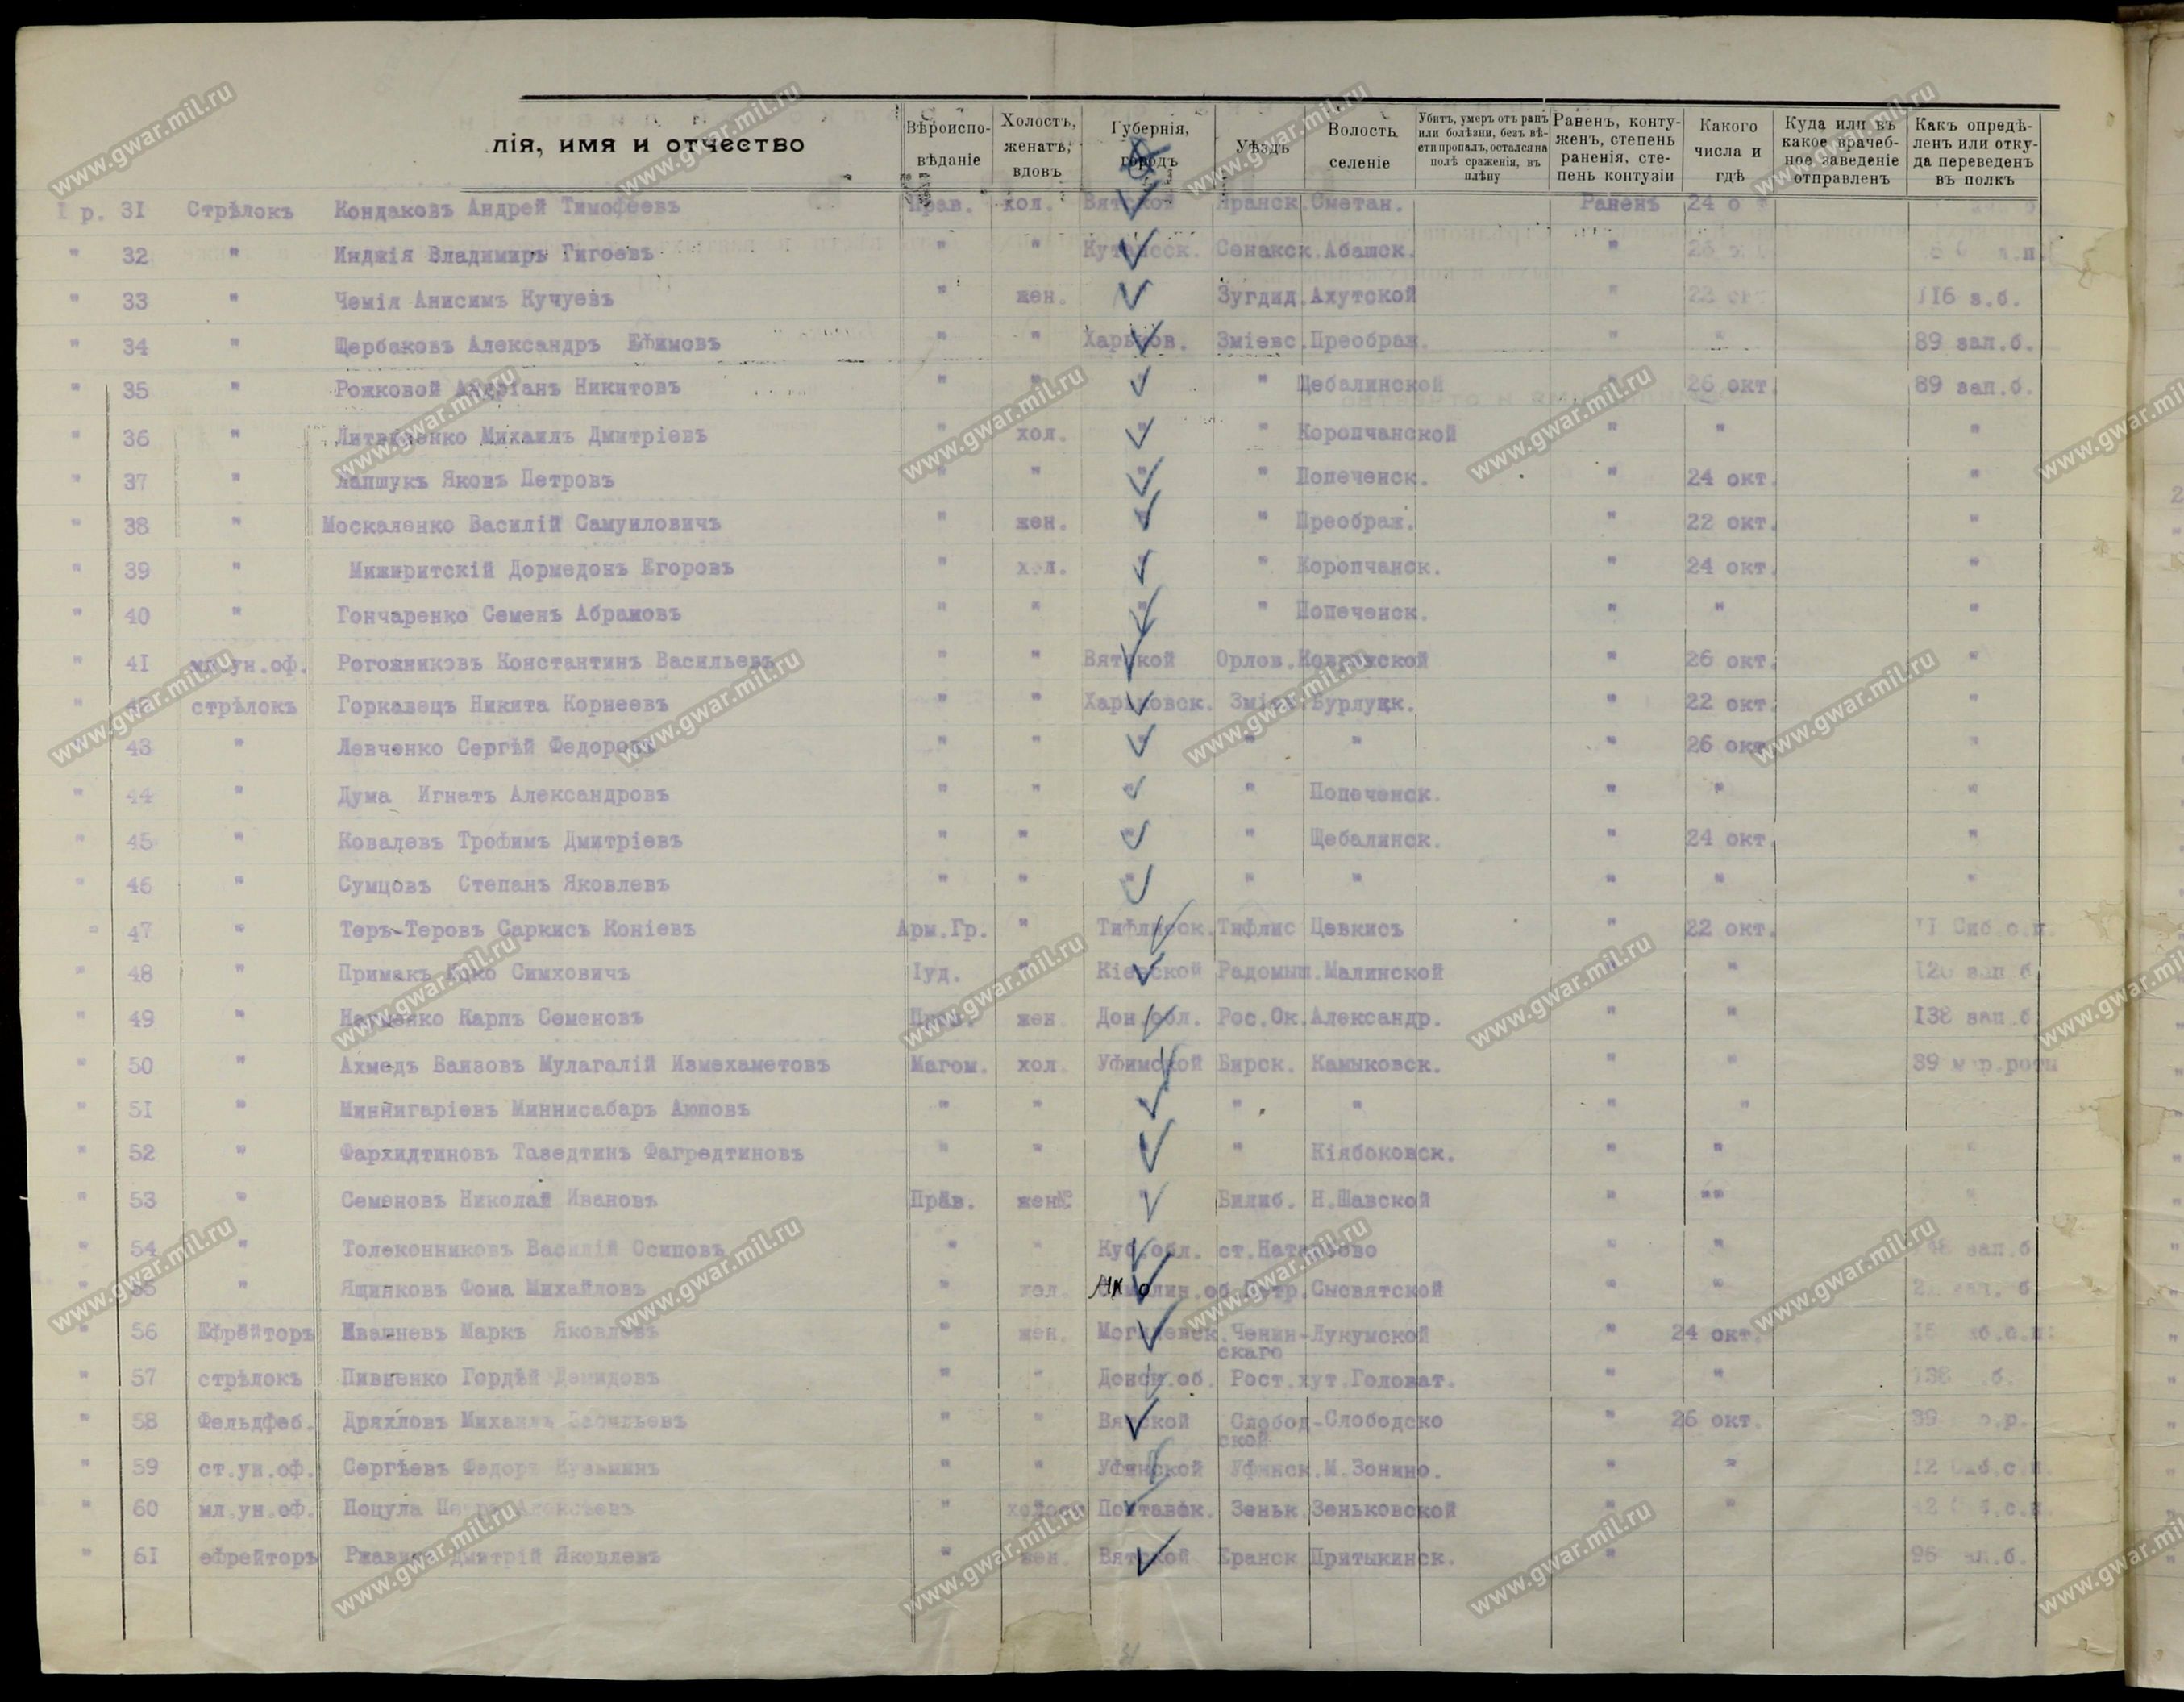 лія, имя и отчество Вѣроиспо-вѣданіе Холостъ, женатъ, вдовъ Губернія, городъ Уѣздъ Волость селеніе Убитъ, умеръ отъ ранъ или болѣзни, безъ вѣ-сти пропалъ, остался на полѣ сраженія, въ плѣну Раненъ, конту-женъ, степень раненія, сте-пень контузіи Какого числа и гдѣ Куда или въ какое врачеб-ное заведеніе отправленъ Какъ опредѣ-ленъ или отку-да переведенъ въ полкъ
I р. 31 Стрѣлокъ Кондаковъ Андрей Тимофеевъ Прав. хол. Вятской Яранск. Сметан. Раненъ 24
" 32 " Инджія Владимиръ Гигоевъ " " Кутаисск. Сенакск. Абашск. " 26
" 33 " Чемія Анисимъ Кучуевъ " жен. Зугдид. Ахутской " 23 окт 116 з.б.
" 34 " Щербаковъ Александръ Ефимовъ " " Харьков. Зміевс. Преображ. " " 89 зап.б.
" 35 " Рожковой Андріанъ Никитовъ " " " " Щебалинской " 26 окт. 89 зап.б.
" 36 " Литвиненко Михаилъ Дмитріевъ " хол. " " Коропчанской " " "
" 37 " Лапшукъ Яковъ Петровъ " " " " Попеченск. " 24 окт. "
" 38 " Москаленко Василій Самуиловичъ " жен. " " Преображ. " 22 окт. "
" 39 " Мижиритскій Дормедонъ Егоровъ " хол. " " Коропчанск. " 24 окт. "
" 40 " Гончаренко Семенъ Абрамовъ " " " " Попеченск. " " "
" 41 мл.ун.оф. Рогожниковъ Константинъ Васильевъ " " Вятской Орлов. " 26 окт. "
" 42 стрѣлокъ Горкавецъ Никита Корнеевъ " " Харьковск. Зміев. Бурлуцк. " 22 окт. "
43 " Левченко Сергѣй Федоровъ " " " " " " 26 окт. "
" 44 " Дума Игнатъ Александровъ " " " " Попеченск. " " "
" 45 " Ковалевъ Трофимъ Дмитріевъ " " " " Щебалинск. " 24 окт. "
" 46 " Сумцовъ Степанъ Яковлевъ " " " " " " " "
" 47 " Теръ-Теровъ Саркисъ Коніевъ Арм.Гр. " Тифлисск. Тифлис Цевкисъ " 22 окт. 11 Сиб.с.п.
" 48 " Примакъ Ицко Симховичъ Іуд. " Кіевской Радомыш. Малинской " " 126 зап б
" 49 " Науменко Карпъ Семеновъ Прав. жен. Дон.обл. Рос.Ок. Александр. " " 138 зап.б
" 50 " Ахмедъ Ваизовъ Мулагалій Измехаметовъ Магом. хол. Уфимской Бирск. Камыковск. " " 39 мар.роты
" 51 " Миннигаріевъ Миннисабаръ Аюповъ " " " " " " "
" 52 " Фархидтиновъ Таведтинъ Фагредтиновъ " " " " Кіябоковск. " " "
" 53 " Семеновъ Николай Ивановъ Прав. жен. " Билиб. Н.Шавской " "" "
" 54 " Толеконниковъ Василій Осиповъ " " Куб.обл. " " зап.б
" 55 " Ящинковъ Фома Михайловъ " хол. Ак Петр. Сысвятской " "
" 56 Ефрейторъ Ивашневъ Маркъ Яковлевъ " жен. Могилевск. Ченин-скаго Лукумской " 24 окт.
" 57 стрѣлокъ Пивненко Гордѣй Демидовъ " " Донск.об. Рост. хут.Головат. " " 138 б.
" 58 Фельдфеб. Дряхловъ Михаилъ Васильевъ " " Вятской Слобод-ской Слободско " 26 окт. 39
" 59 ст.ун.оф. Сергѣевъ Федоръ Кузьминъ " " Уфимской Уфимск. М.Зонино. " " 12 Сиб.с.п.
" 60 мл.ун.оф. Поцула Алексѣевъ " холост Полтавск. Зеньк. Зеньковской " " с.п.
" 61 ефрейторъ Дмитрій Яковлевъ " жен. Вятской Еранск Притыкинск. " 96 зап.б.